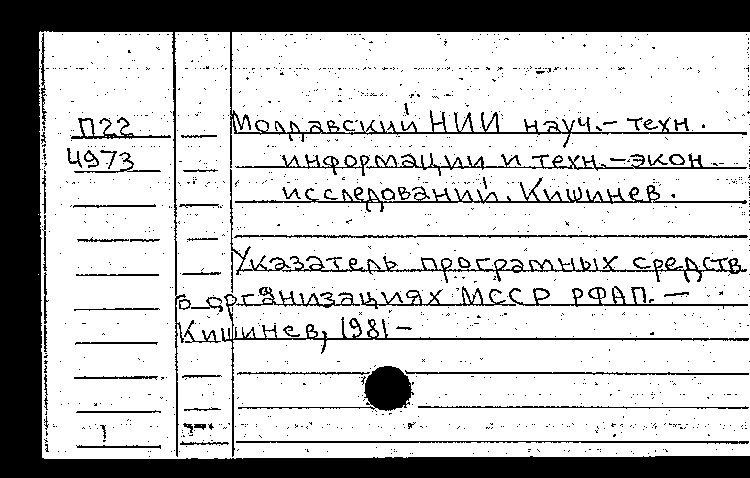 П22
4973
Молдавский НИИ науч.-техн.
информации и техн.-экон.
исследований. Кишинев.
Указатель програмных средств
в организациях МССР РФАП. —
Кишинев, 1981 —